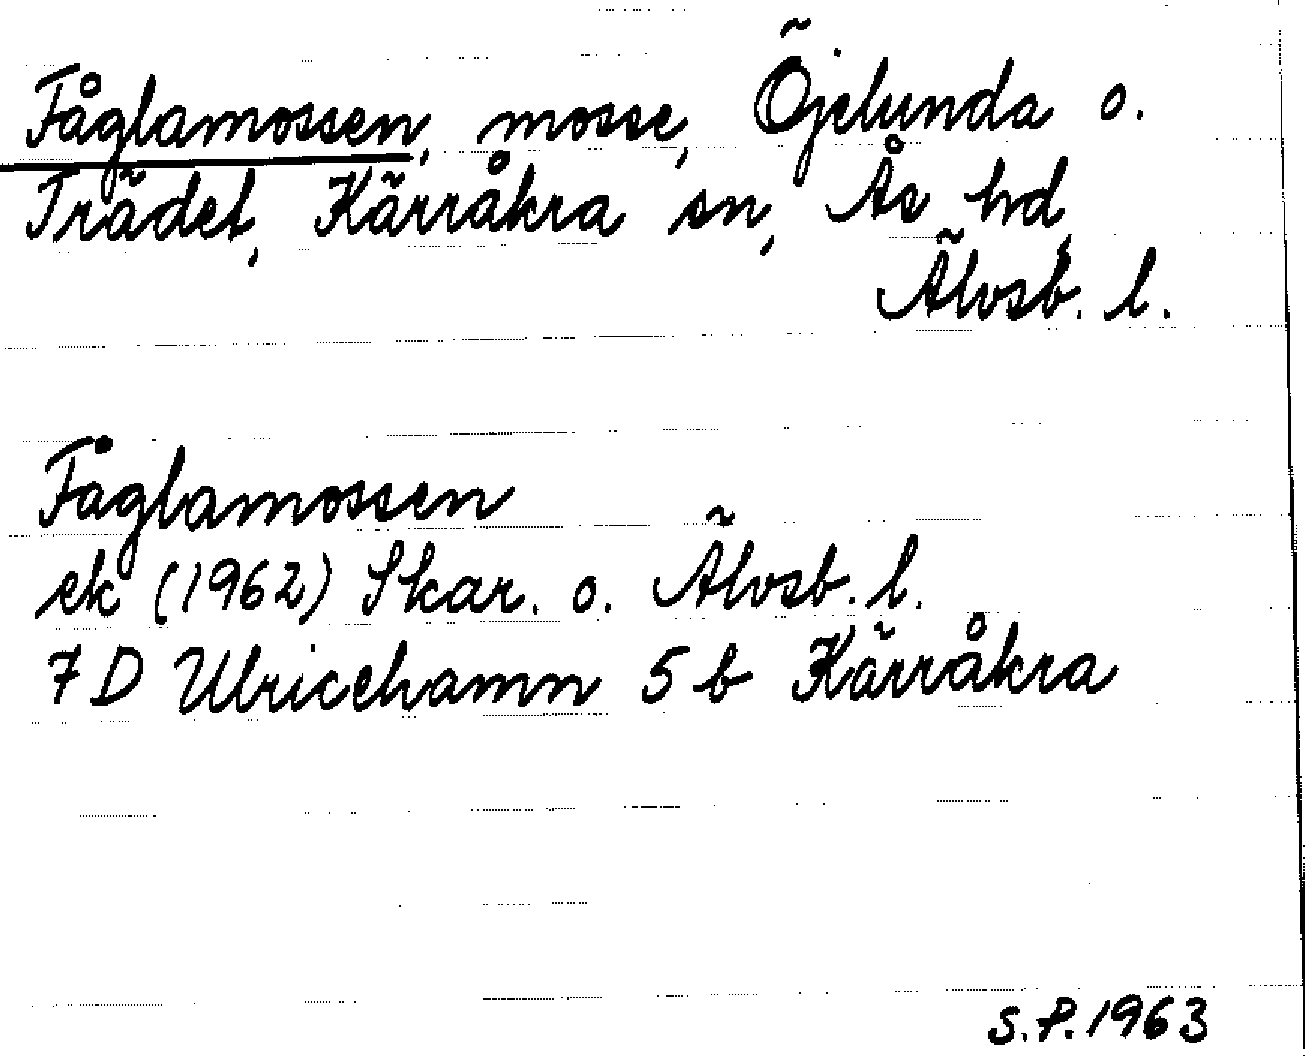 Fåglamossen, mosse, Öjelunda o.
Trädet, Kärråkra sn, Ås hd,
Älvsb. l.
Fåglamossen
ek (1962) Skar. o. Älvsb. l.
7 D Ulricehamn 5 b Kärråkra
S.P. 1963